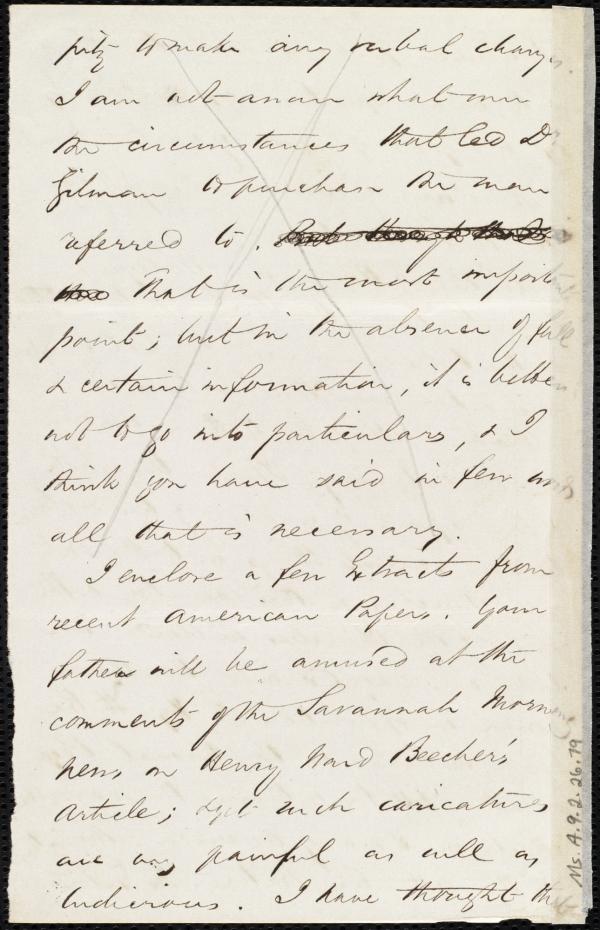 pity to make any verbal change.
I am not aware what were
the circumstances that led Dr
Gilman to purchase the man
referred to.
That is the most important
point; but in the absence of full
& certain information, it is better
not to go into particulars, & I
think you have said in few words
all that is necessary.
I enclose a few Extracts from
recent American Papers. Your
father will be amused at the
comments of the Savannah Morning
News on Henry Ward Beecher's
Article; & yet such caricatures
are very painful as well as
ludicrous. I have thought that
Ms. A. 9. 2. 26. 79